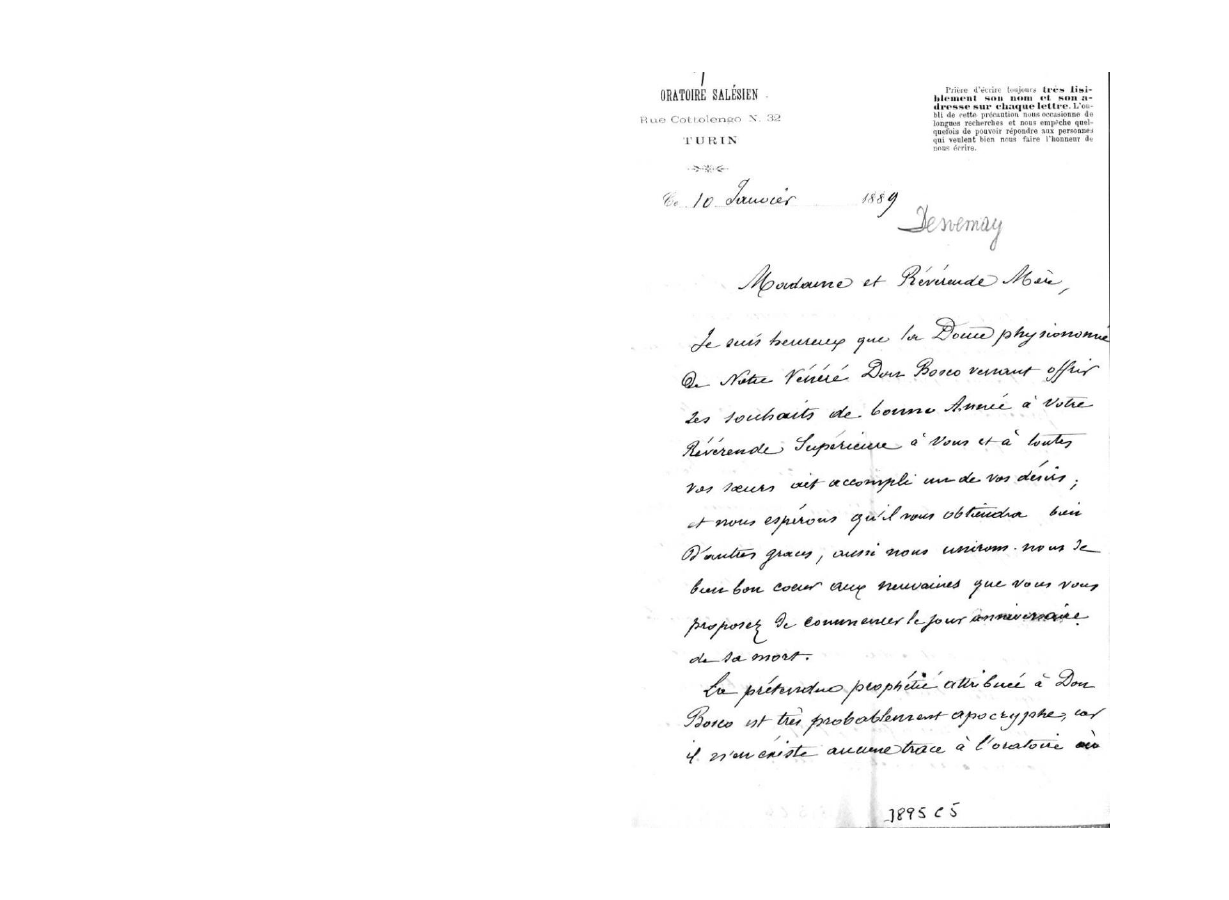 ORATOIRE SALÉSIEN
Rue Cottolengo N. 32
TURIN
Prière d'écrire toujours très lisi-
blement son nom et son a-
dresse sur chaque lettre. L'ou-
bli de cette précaution nous occasionne de
longues recherches et nous empêche quel-
quefois de pouvoir répondre aux personnes
qui veulent bien nous faire l'honneur de
nous écrire.
Ce 10 Janvier 1889
Desvernay
Madame et Révérende Mère,
Je suis heureux que la Douce physionomie
De Notre Vénéré Don Bosco venant offrir
ses souhaits de bonne Année à Votre
Révérende Supérieure à Vous et à toutes
vos sœurs ait accompli un de vos désirs ;
et nous espérons qu'il vous obtiendra bien
D'autres graces, aussi nous unirons-nous de
bien bon coeur aux neuvaines que vous vous
proposez de commencer le jour anniversaire
de sa mort.
La prétendue prophétie attribuée à Don
Bosco est très probablement apocryphe, car
il n'en existe aucune trace à l'oratoire où
1895 C 5